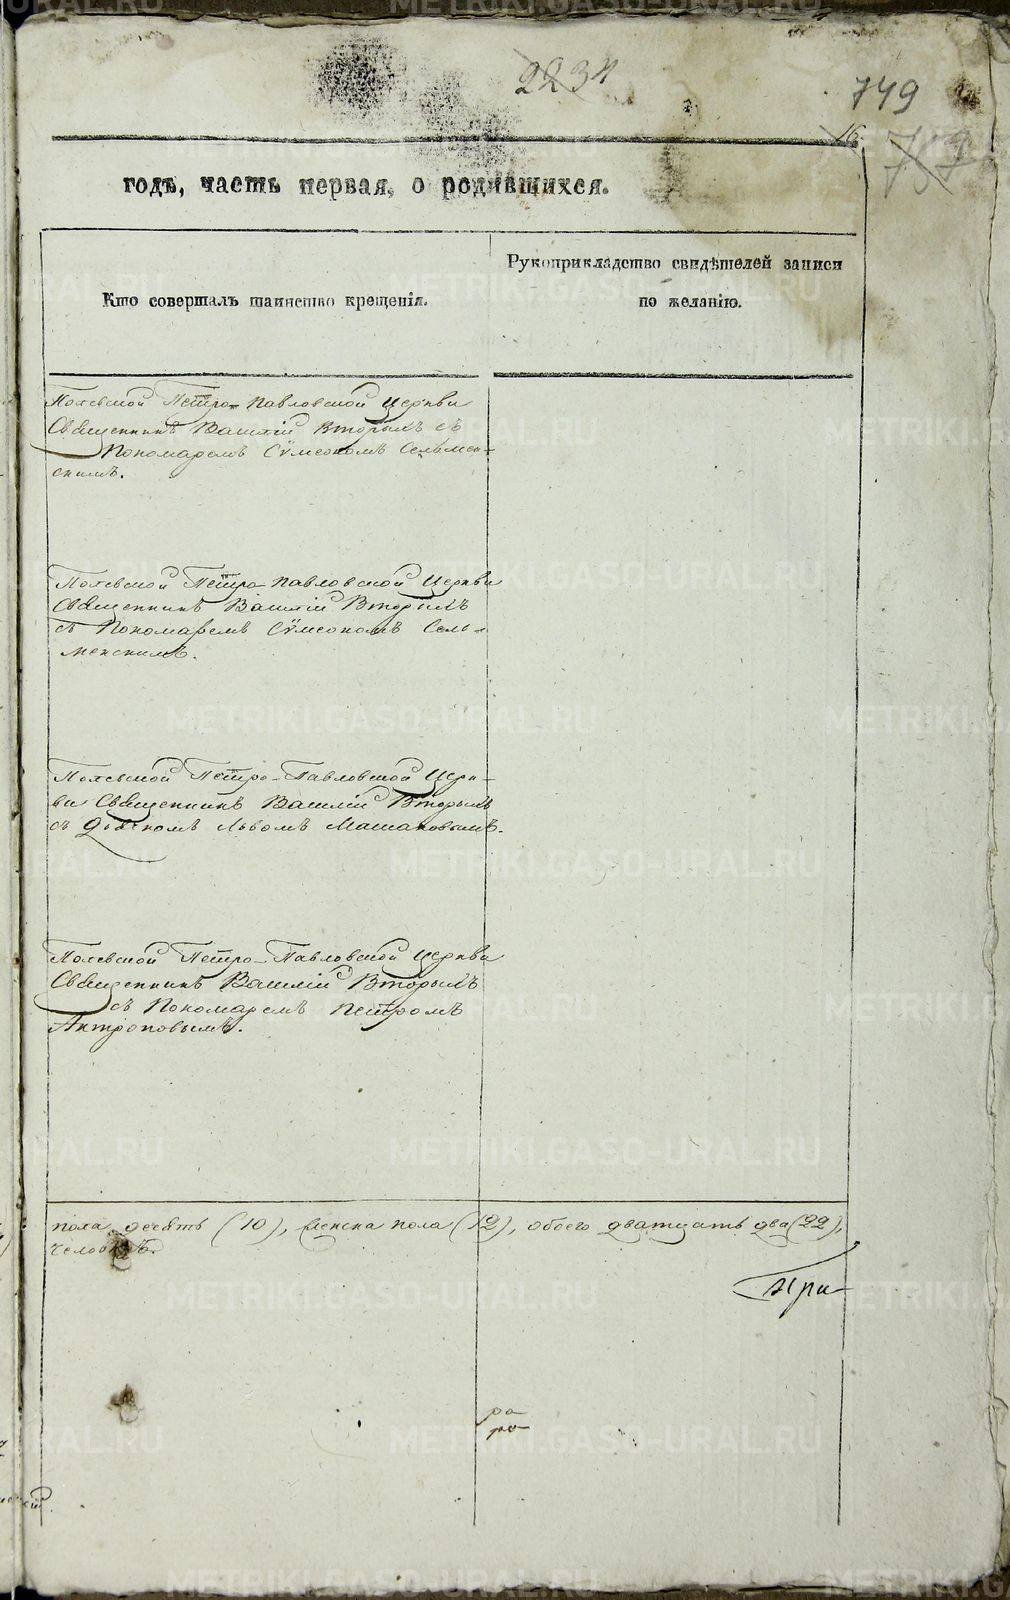 2234
749
16.
757
годѣ, часть первая, о родившихся.
Кто совершалъ таинство крещенія.
Рукоприкладство свидѣтелей записи
по желанію.
Полевской Петро-Павловской Церкви
Священникъ Василій Вторыхъ съ
Пономаремъ Сѵмеономъ Сельмен-
скимъ.
Полевской Петро-Павловской Церкви
Священникъ Василій Вторыхъ
съ Пономаремъ Сѵмеономъ Сель-
менскимъ.
Полевской Петро-Павловской Церк-
ви Священникъ Василій Вторыхъ
съ Дьякомъ Львомъ Машановымъ.
Полевской Петро-Павловской Церкви
Священникъ Василій Вторыхъ
съ Пономаремъ Петромъ
Антроповымъ.
пола десять (10), женска пола (12), обоего двадцать два (22),
человѣкъ.
При-
ра-
ро-
METRIKI.GASO-URAL.RU